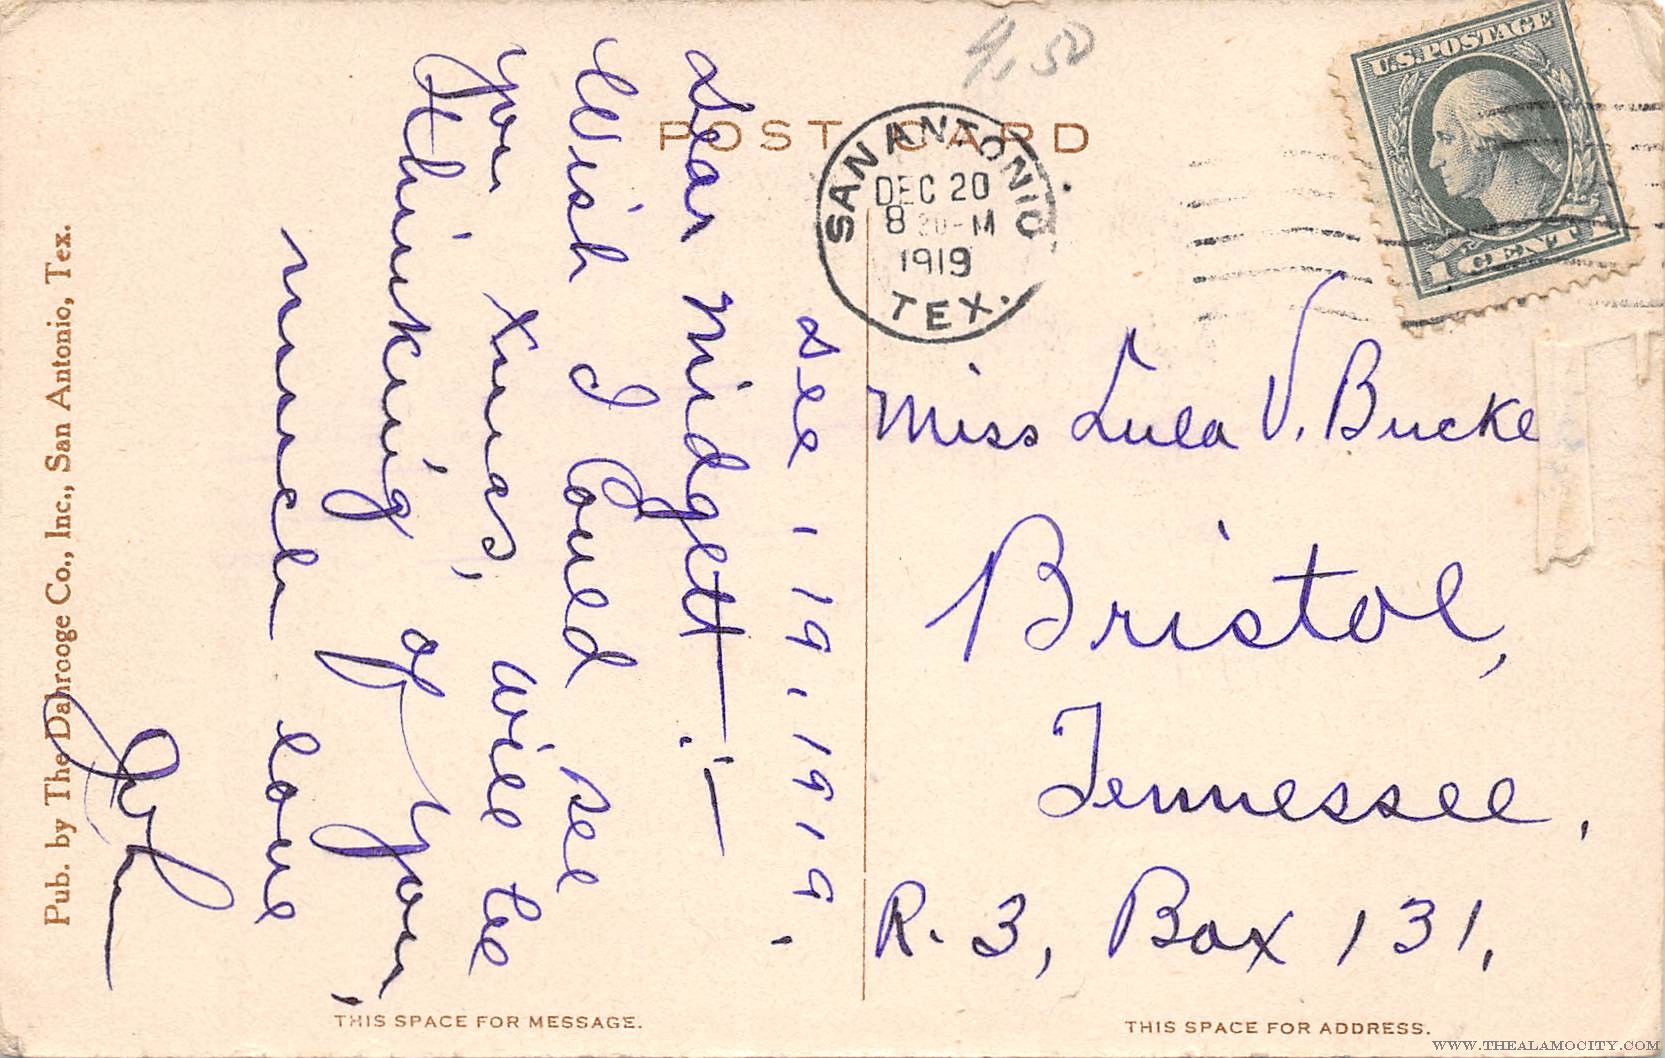 4.50
POST CARD
SAN ANTONIO
DEC 20
8 30-M
1919
TEX.
U.S. POSTAGE
1 CENT
Dec. 19. 1919.
Dear Midgett:—
Wish I Could see
you Xmas, will be
thinking of you.
much love
Miss Lula V. Bucke
Bristol,
Tennessee,
R. 3, Box 131,
Pub. by The Dahrooge Co., Inc., San Antonio, Tex.
THIS SPACE FOR MESSAGE.
THIS SPACE FOR ADDRESS.
WWW.THEALAMOCITY.COM